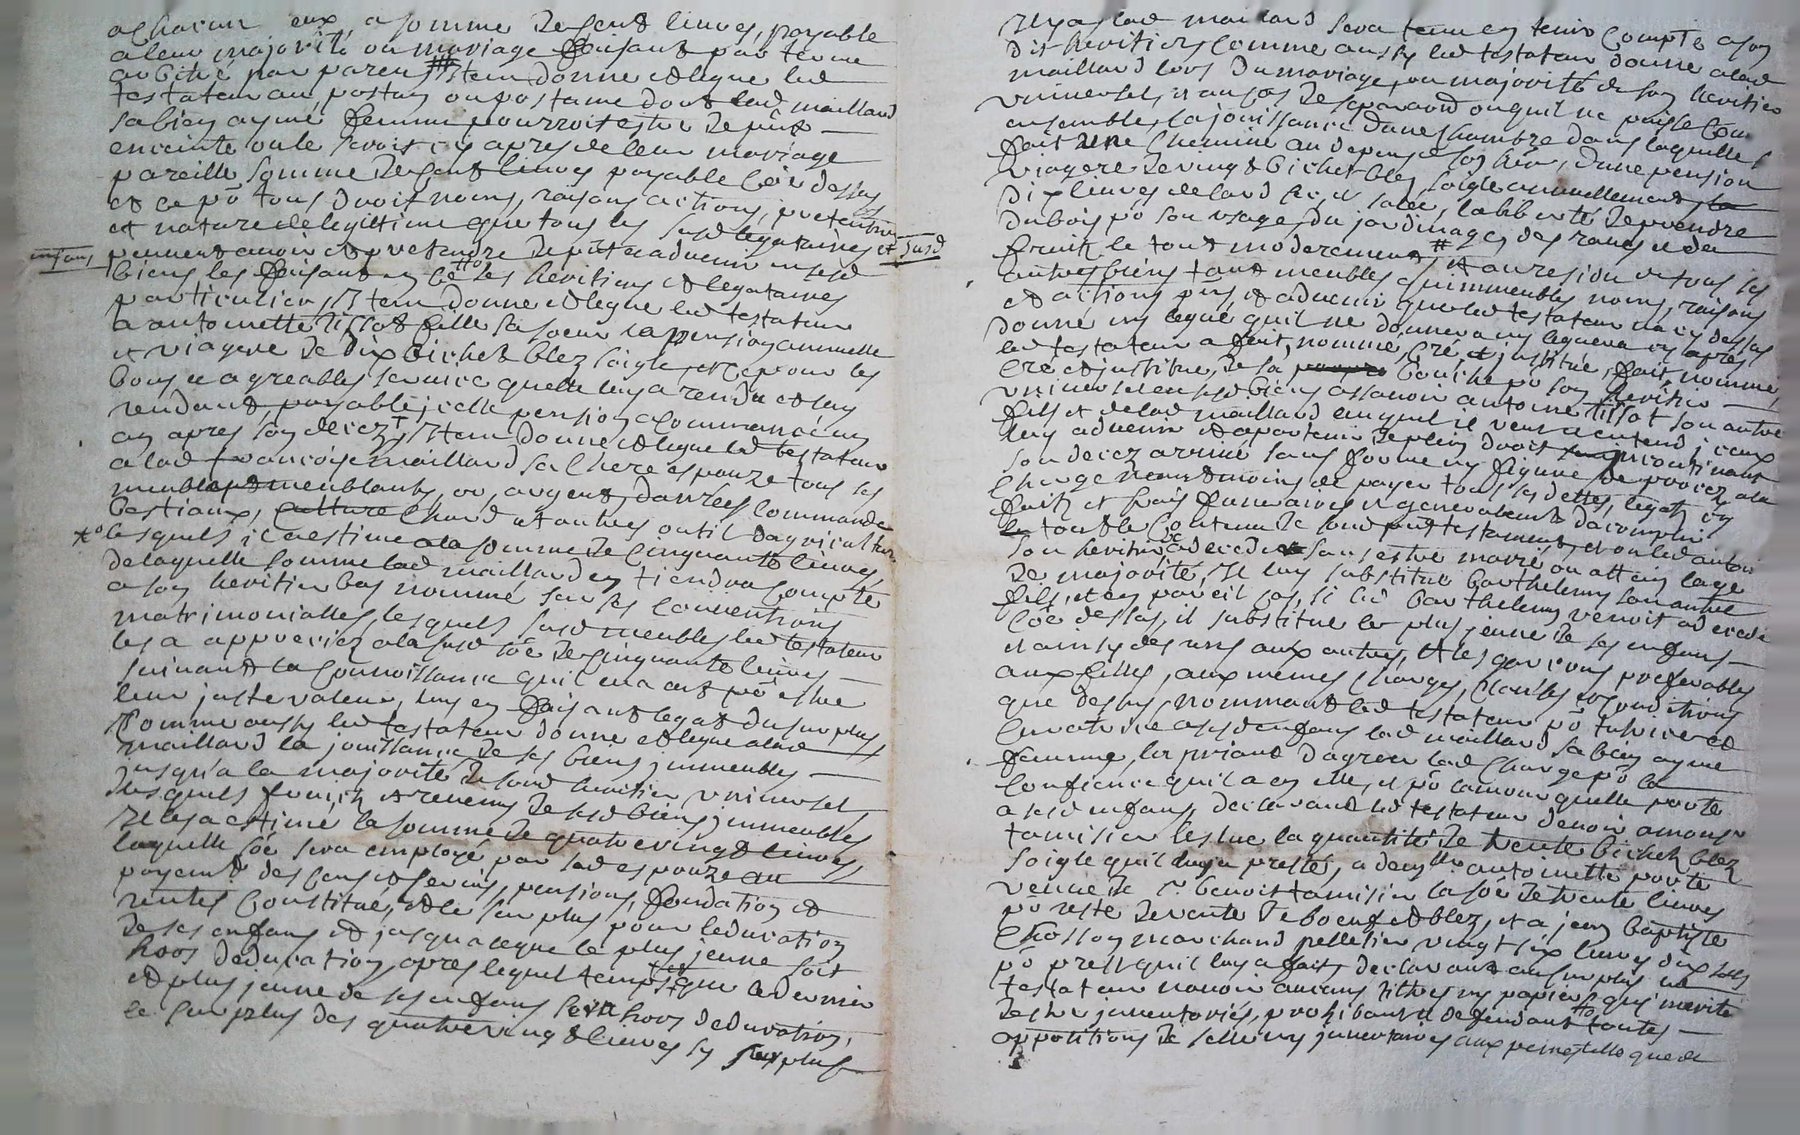 a chacun eux a somme de cent livres, payable
a leur majorité ou mariage faisant par terme
au biché par pareu Item donne et legue led
testateur au postum ou postume dont lad maillard
sa bien aymé femme pourroit estre de pñt
enceinte ou le seroit cy apres de leur mariage
pareille somme de cent livres payable cõe dessus
et ce põ tous droit noms, raisons actions, pretentions
et nature de legittime que tous les susd legataires
enfans peuvent avoir et pretendre de pñt et advenir et susd
biens les faisant en ce les heritiers et legataires
particuliers, Item donne et legue led testateur
a antoinette tissot fille sa soeur la pension annuelle
et viagere de dix bichet blez soigle et ce pour les
bons et agreables service quelle luy a rendu et luy
rendant, payable jcelle pension a commencé un
an apres son decez, Item donne et legue led testateur
a lad francoise maillard sa chere espouze tous ses
meubles meublants, or, argent, danrées commande
bestiaux, culture chard et autres outil dagriculture
lesquels il a estime a la somme de cinquante livres,
de laquelle somme lad maillard en tiendra compte
a son heritier bas nommé sur ses conventions
matrimonialles, lesquels susd meubles led testateur
les a apprecier a la susd sõe de cinquante livres
suivant la connoissance quil en a ont põ estre
leur juste valeur, luy en faisant legat du surplus
Comme aussy led testateur donne et legue a lad
maillard la jouissance de ses biens jmmeubles
jusqua la majorité de sond heritier universel
desquels fruich et revenus de sesd biens jmmeubles
Il les a estimé la somme de quatre vingt livres,
laquelle sõe sera employé par sad espouze au
payemt des cens et servis, pensions, fondation et
rentes constitué, et le surplus pour leducation
de ses enfans et jusqua ce que le plus jeune soit
hors deducation, apres lequel temps et que le dernier
et plus jeune de ses enfans sera hors deducation,
le surplus des quatre vingt livres sy surplus
Il y a lad maillard sera tenu en tenir compte a son
dit heritier, comme aussy led testateur donne a lad
maillard lors du mariage, ou majorité de son heritier
universel, et au cas de separaõn ou quil ne puisse
ensemble, la joüissance dune chambre dans laquelle
fait une cheminé au depens de son hoir, dune pension
viagere de vingt bichet blez soigle annuellement,
dix livres de lard sec et salée, la liberté de prendre
du bois põ son usage, du jardinages des raves et du
fruits le tout moderement, et au residu de tous ses
autres biens tant meubles qu immeubles noms, raisons
et actions pñs et advenir que led testateur na cy dessus
donné ny legué quil ne donnera ny leguera cy apres
led testateur a fait, nommé, créé et justitué, fait, nomme,
cré et justitue, de sa bouche põ son heritier
universel en sesd biens assavoir antoine tissot son autre
fils et de lad maillard auquel il veut et entend jceux
luy advenir et apartenir de plein droit jncontinant
son decez arrivé sans forme ny figure de procez, a la
charge neantmoins de payer tous ses dettes, legats cy
faits et frais funeraires et generalement dacomplir
tout le contenu de sond pñt testament, et ou led antoine
son heritier decede sans estre marié ou atteint lage
de majorité, Il luy substitue barthelemy son autre
fils, et en pareil cas, si led barthelemy venoit a deceder
cõe dessus, il substitue le plus jeune de ses enfans
et ainsy des uns aux autres, et les garcons preferables
aux filles, aux memes charges, clauses et conditions
que dessus, nommant led testateur põ tutrice et
curatrice a sesd enfans lad maillard sa bien aymé
femme, la priant dagreer lad charge põ la
confience quil a en elle, et põ lamour quelle porte
a sesd enfans, declarant led testateur devoir a monsr
tamisier lesné la quantité de trente bichet blez
soigle quil luy a presté, a demlle antoinette porte
veuve de sr benoit tamisier la sõe de trente livres
põ reste de vente de boeuf et blez, et a jean baptiste
Chosson marchand pelletier vingt six livres dix sols
põ prest quil luy a fait, declarant au surplus led
testateur navoir aucuns tiltres ny papiers qui merite
destre jnventoriés, prohibant et defendant toutes
appositions de sellé ny jnventaires aux peines telle que de